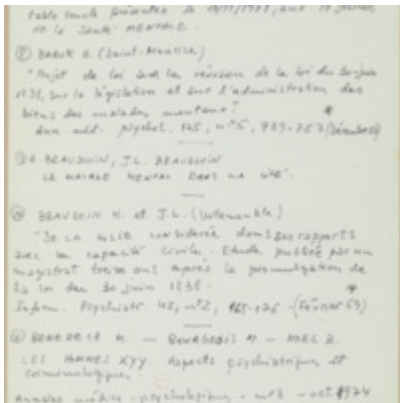 table ronde présentée le 19/11/1981, aux journées
de la Santé MENTALE.
BARUK H. (Saint-Maurice)
"Projet de loi sur la révision de la loi du 30 juin
1838, sur la législation et sur l'administration des
biens des malades mentaux"
Ann. méd. psychol. 125, n°5, 739-753 (Décembre
A. BEAUDOUIN, J.L. BEAUDOUIN
LE MALADE MENTAL DANS LA
H. et J.L.
"De la folie considérée dans ses rapports
avec la capacité civile. Etude publiée par un
magistrat treize ans après la promulgation de
la loi du 30 juin 1838.
Inform. Psychiatr. 45, n°2, 165-176 (février 69)
BENEZECH M. — BOURGEOIS M. — NOEL B.
LES HOMMES XYY. Aspects psychiatriques et
criminologiques.
Annales médico-psychologiques - n°3 - oct 1974